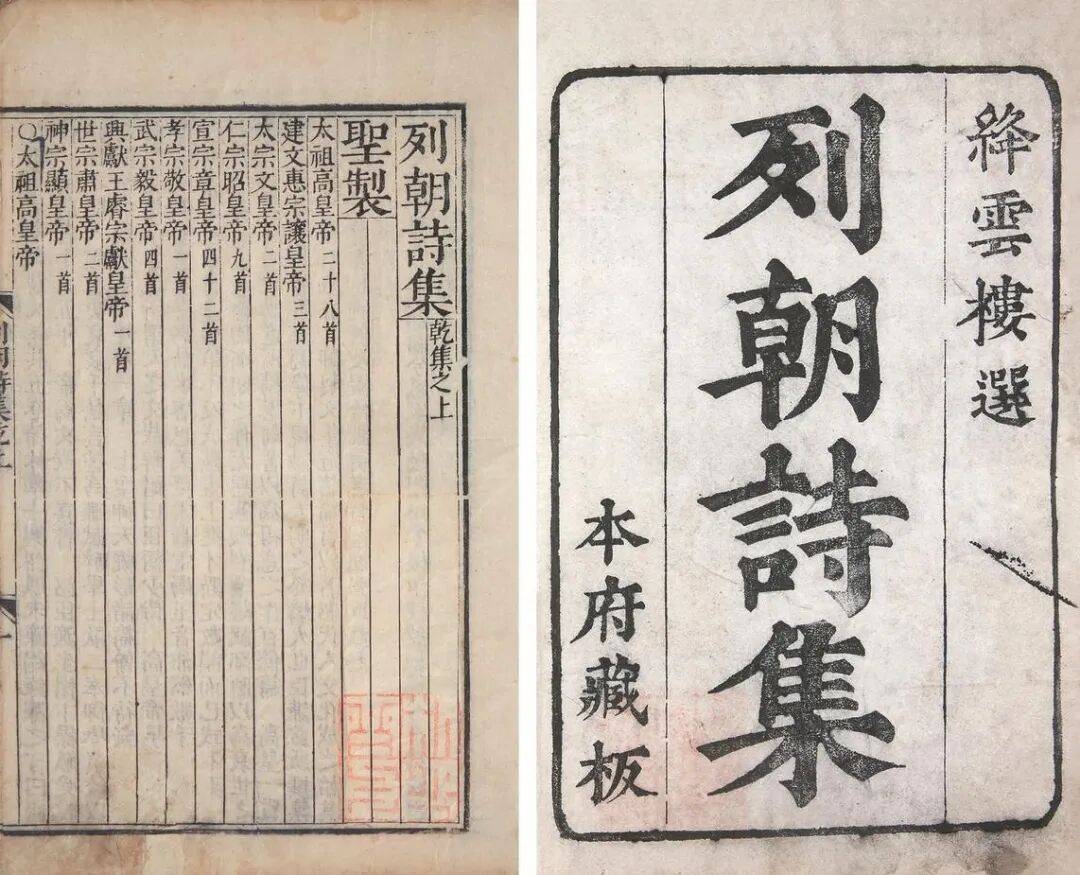 列朝詩集 乾集之上
聖製
太祖高皇帝 二十八首
建文惠宗讓皇帝 三首
太宗文皇帝 二首
仁宗昭皇帝 九首
宣宗章皇帝 四十二首
孝宗敬皇帝 一首
武宗毅皇帝 四首
興獻王睿宗獻皇帝 一首
世宗肅皇帝 二首
神宗顯皇帝 一首
○太祖高皇帝
絳雲樓選
列朝詩集
本府藏板